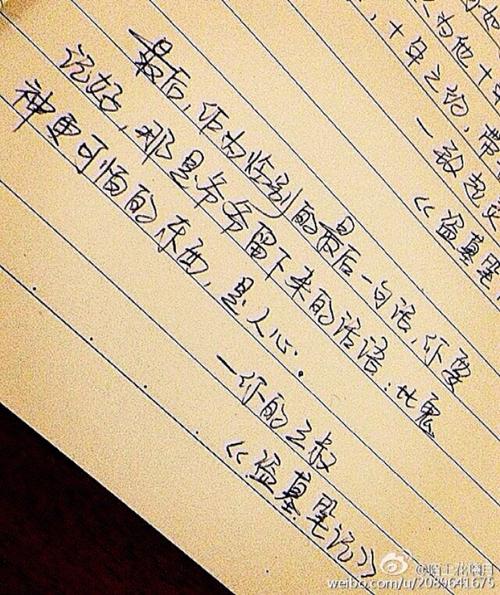 为他十
，十年之
，带
一致起
《盗墓笔
最后，作为临别的最后一句话，你要
记好，那是爷爷留下来的话语：比鬼
神更可怕的东西，是人心。
—你的三叔
《盗墓笔记》
weibo.com/u/2089641675